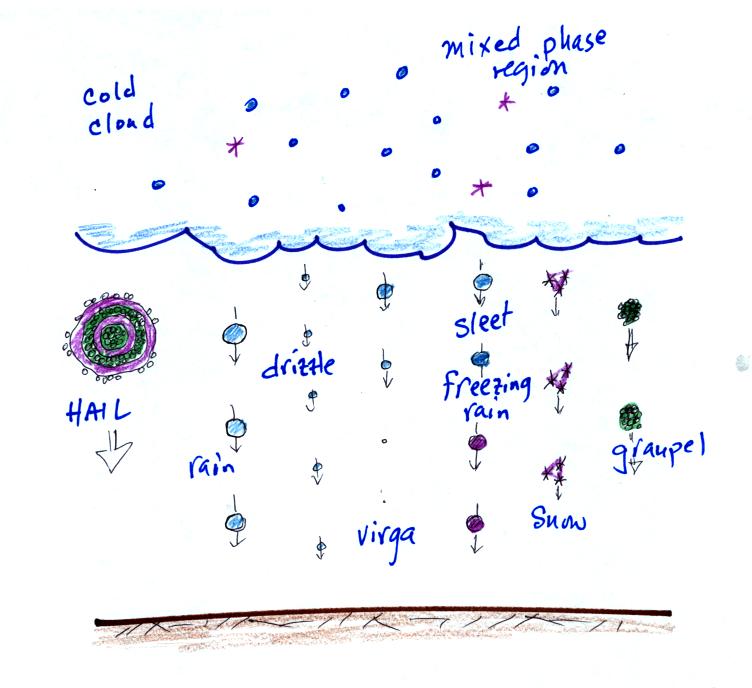 mixed phase
region
cold
cloud
sleet
drizzle
freezing
rain
HAIL
rain
graupel
Snow
virga